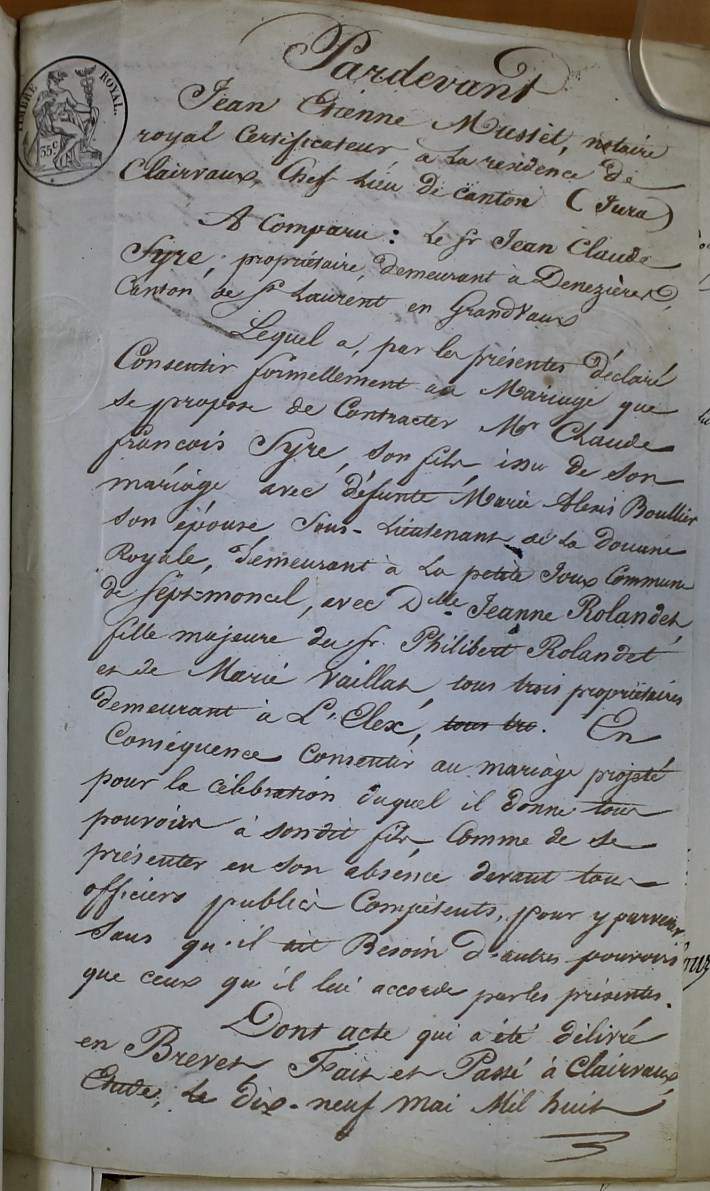 TIMBRE ROYAL.
35c
Pardevant
Jean Etienne Musset, notaire
royal Certificateur, à la residence de
Clairvaux, Chef lieu de canton (Jura)
A Comparu : Le Sr Jean Claude
Fyre, propriétaire, demeurant à Denezières,
Canton de St Laurent en Grandvaux
Lequel a, par les présentes déclaré
Consentir formellement au Mariage que
se propose de Contracter Mr Claude
françois Fyre, son fils, issu de son
mariage avec défunte Marie Alexis Boullier
son épouse Sous-Lieutenant de la Douane
Royale, demeurant à la petite Joux Commune
de Septmoncel, avec Dlle Jeanne Rolandet,
fille majeure du Sr. Philibert Rolandet
et de Marie Vaillat, tous trois propriétaires
demeurant à L'Elex, tous tro. En
Conséquence Consentir au mariage projeté
pour la célébration duquel il donne tous
pouvoirs à sondit fils Comme de se
présenter en son absence devant tous
officiers publics Compétents, pour y parvenir
Sans qu'il ait Besoin d'autres pouvoirs
que ceux qu'il lui accorde par les présentes.
Dont acte qui a été délivré
en Brevet, Fait et Passé à Clairvaux,
Etude, Le dix-neuf mai Mil huit